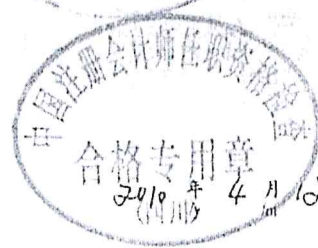 中国注册会计师任职资格检查
合格专用章
2010年4月
(四川)